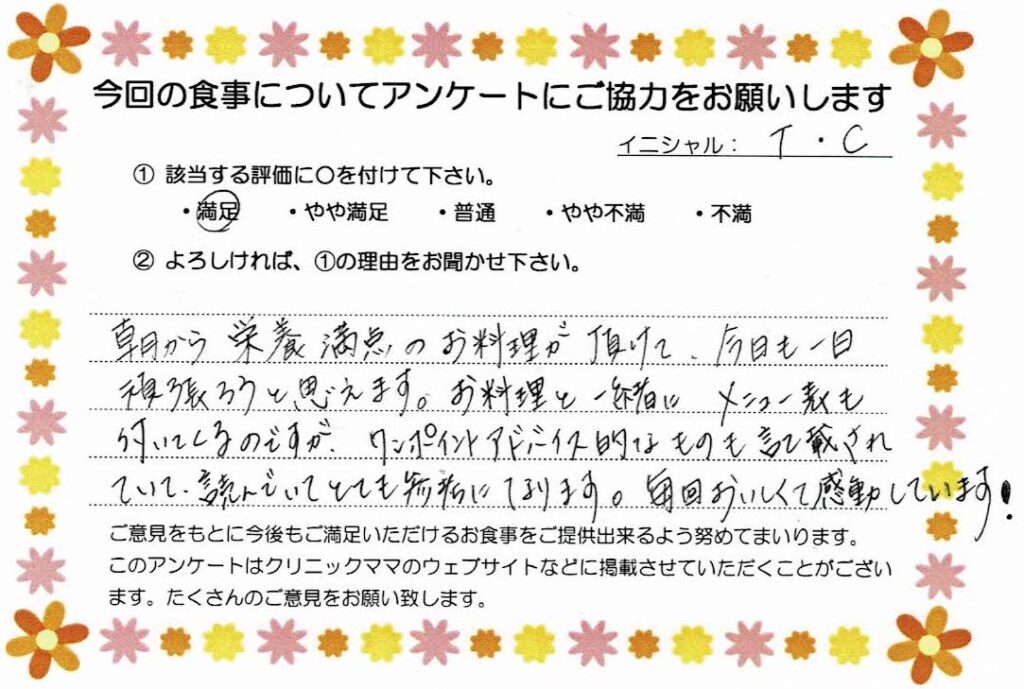 今回の食事についてアンケートにご協力をお願いします
イニシャル： T・C
① 該当する評価に〇を付けて下さい。
・満足 ・やや満足 ・普通 ・やや不満 ・不満
② よろしければ、①の理由をお聞かせ下さい。
朝から栄養満点のお料理が頂けて、今日も一日
頑張ろうと思えます。お料理と一緒に メニュー表も
付いてくるのですが、ワンポイントアドバイス的なものも記載され
ていて、読んでいてとても参考になります。毎回おいしくて感動しています！
ご意見をもとに今後もご満足いただけるお食事をご提供出来るよう努めてまいります。
このアンケートはクリニックママのウェブサイトなどに掲載させていただくことがござい
ます。たくさんのご意見をお願い致します。